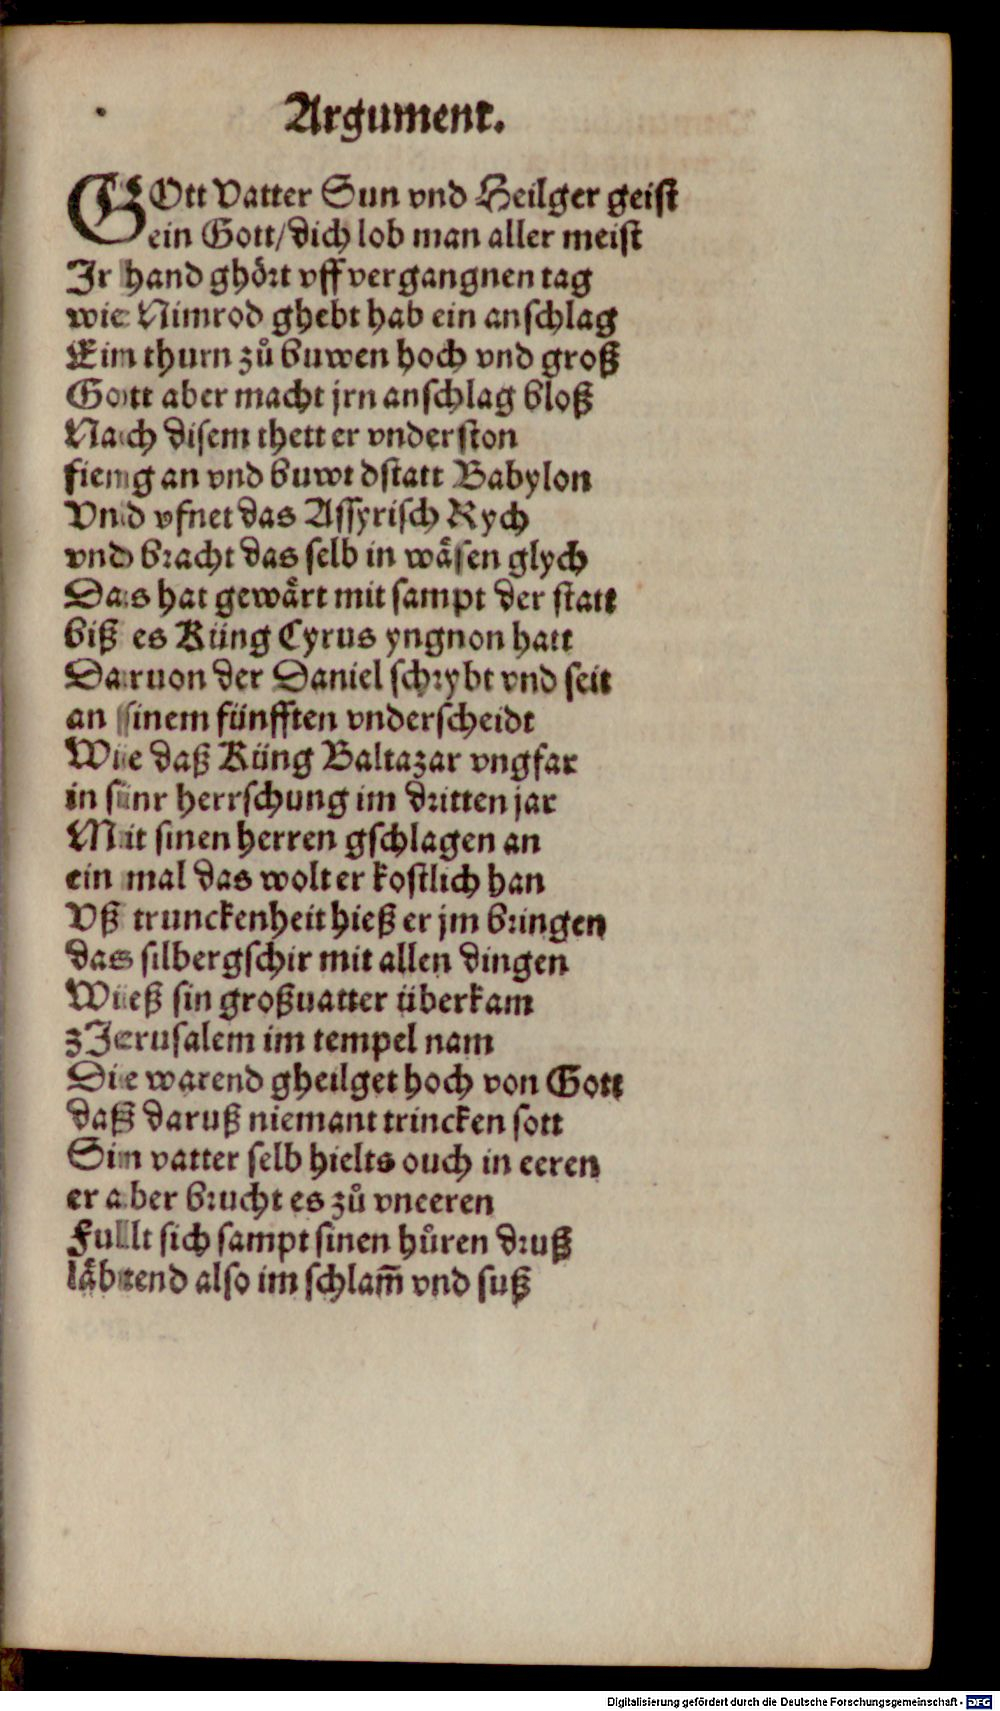 Argument.
GOtt Vatter Sun vnd Heilger geist
ein Gott/dich lob man aller meist
Ir hand ghört vff vergangnen tag
wie Nimrod ghebt hab ein anschlag
Eim thurn zů buwen hoch vnd groß
Gott aber macht jrn anschlag bloß
Nach disem thett er vnderston
fieng an vnd buwt dstatt Babylon
Vnd vfnet das Assyrisch Rych
vnd bracht das selb in wåsen glych
Das hat gewårt mit sampt der statt
biß es Küng Cyrus yngnon hatt
Daruon der Daniel schrybt vnd seit
an sinem fünfften vnderscheidt
Wie daß Küng Baltazar vngfar
in sinr herrschung im dritten jar
Mit sinen herren gschlagen an
ein mal das wolt er kostlich han
Vß trunckenheit hieß er jm bringen
das silbergschir mit allen dingen
Wieß sin großuatter überkam
zJerusalem im tempel nam
Die warend gheilget hoch von Gott
daß daruß niemant trincken sott
Sin vatter selb hielts ouch in eeren
er aber brucht es zů vneeren
Fullt sich sampt sinen hůren druß
låbtend also im schlam̄ vnd suß
Digitalisierung gefördert durch die Deutsche Forschungsgemeinschaft - DFG